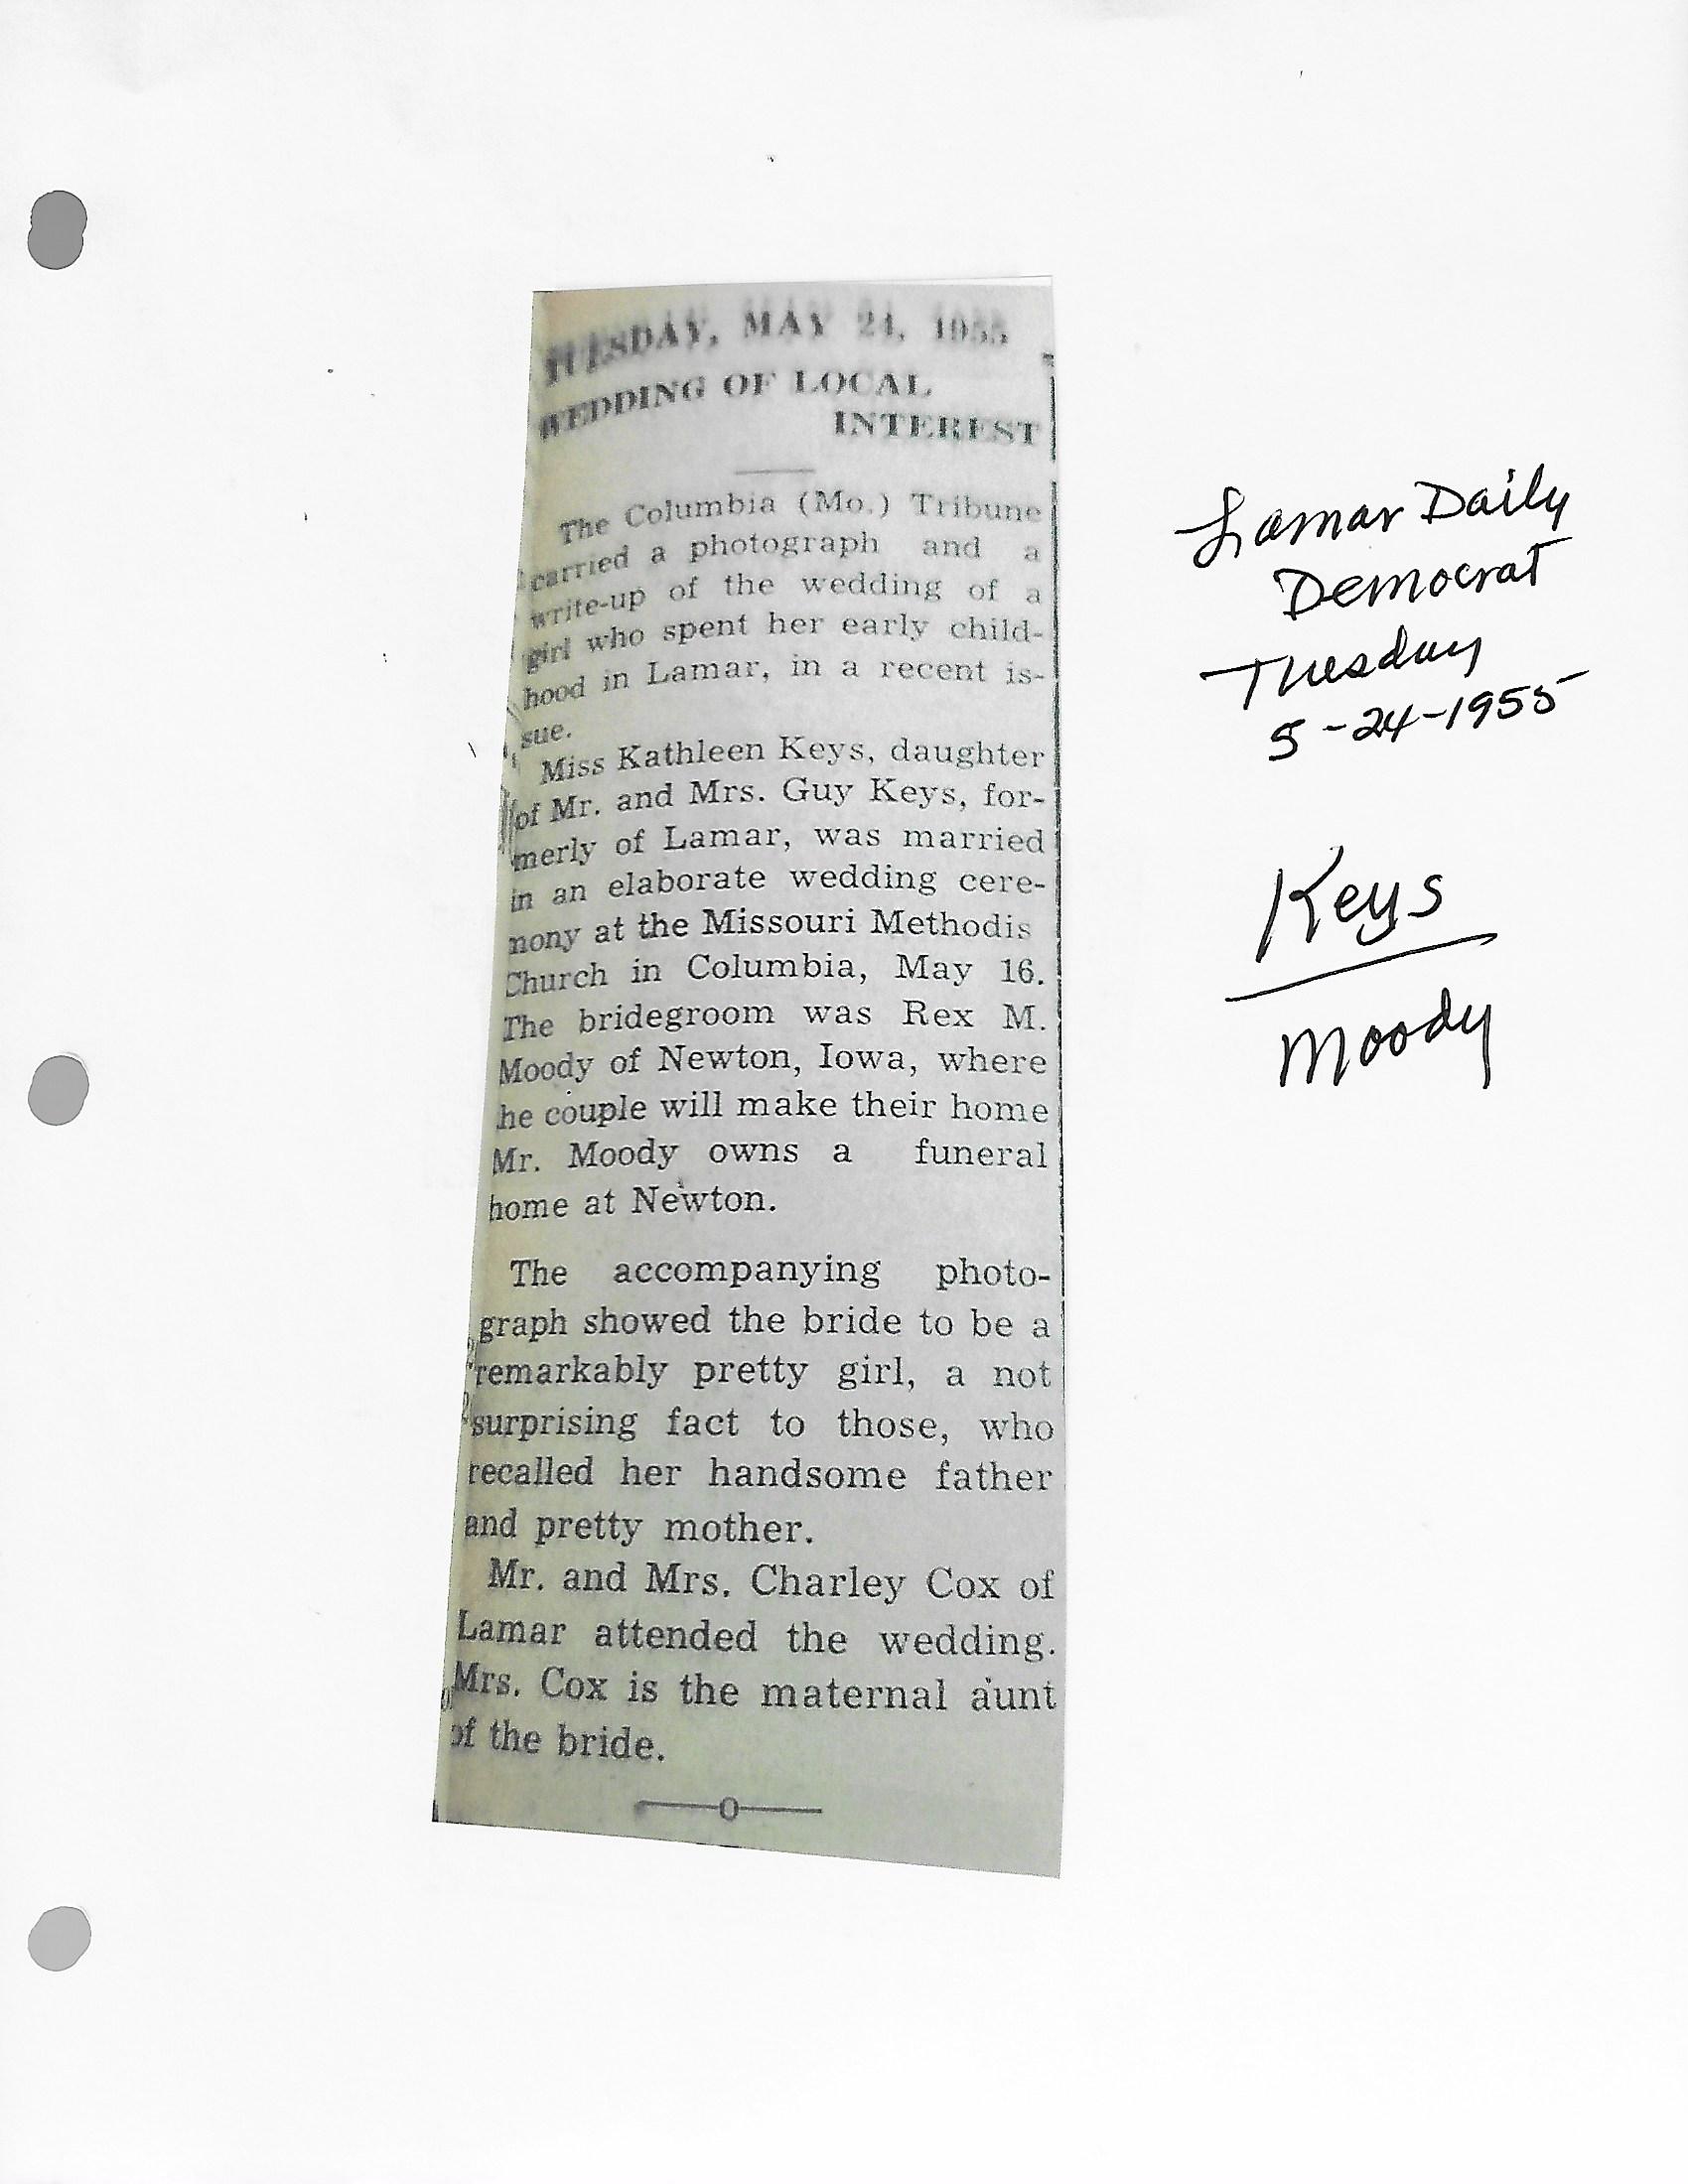 TUESDAY, MAY 24, 1955
WEDDING OF LOCAL
INTEREST
The Columbia (Mo.) Tribune
carried a photograph and a
write-up of the wedding of a
girl who spent her early child-
hood in Lamar, in a recent is-
sue.
Miss Kathleen Keys, daughter
of Mr. and Mrs. Guy Keys, for-
merly of Lamar, was married
in an elaborate wedding cere-
mony at the Missouri Methodis
Church in Columbia, May 16.
The bridegroom was Rex M.
Moody of Newton, Iowa, where
he couple will make their home
Mr. Moody owns a funeral
home at Newton.
The accompanying photo-
graph showed the bride to be a
remarkably pretty girl, a not
surprising fact to those, who
recalled her handsome father
and pretty mother.
Mr. and Mrs. Charley Cox of
Lamar attended the wedding.
Mrs. Cox is the maternal aunt
of the bride.
Lamar Daily
Democrat
Tuesday
5-24-1955
Keys
Moody